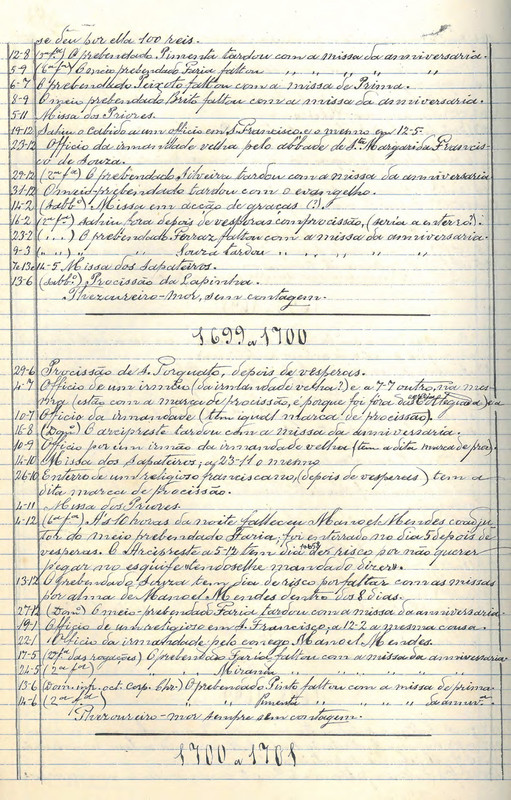 se deu por ella 100 reis.
12-8 (5ª fª) O prebendado Pimenta tardou com a missa da anniversaria.
5-9 (6ª fª) O meio prebendado Faria faltou " " " " "
6-7 O prebendado Peixoto faltou com a missa de Prima.
8-9 O meio prebendado Brito faltou com a missa da anniversaria.
5-11 Missa dos Priores.
19-12 Sahiu o Cabido a um officio em S. Francisco, e o mesmo em 12-5.
23-12 Officio da irmandade velha pelo abbade de Stª Margarida Francis-
co de Souza.
29-12 (2ª fª) O prebendado Silveira tardou com a missa da anniversaria
31-12 O meio-prebendado tardou com o evangelho.
14-2 (sabbº) Missa em acção de graças (?).
16-2 (2ª fª) sahiu fora depois de vesperas com procissão, (seria a enterro?).
23-2 (...) O prebendado Ferraz faltou com a missa da anniversaria.
9-3 (" ") " " Souza tardou " " " "
7e13e14-5 Missa dos Sapateiros.
13-6 (sabbº) Procissão da Lapinha.
Thezoureiro-mor, sem contagem.
1699 a 1700
29-6 Procissão de S. Torquato, depois de vesperas.
4-7 Officio de um irmão (da irmandade velha?) e a 7-7 outro, na mes-
ma (estão com a marca de procissão, é porque foi fora da Collegiada)
10-7 Officio da irmandade (tem igual marca de procissão).
16-8 (Domº) O arcipreste tardou com a missa da anniversaria.
10-9 Officio por um irmão da irmandade velha (tem a dita marca de proc).
14-10 Missa dos Sapateiros; a 23-11 o mesmo
26-10 Enterro de um religioso franciscano, (depois de vesperas) tem a
dita marca de procissão.
4-11 Missa dos Priores.
4-12 (6ª fª) Ás 10 horas da noite falleceu Manoel Mendes coadju-
tor do meio prebendado Faria; foi enterrado no dia 5 depois de
vesperas. O Arcipreste a 5-12 tem dia de risco por não querer
pegar no esquife tendoselhe mandado dizer.
13-12 O prebendado Seixa tem dia de risco por faltar com as missas
por alma de Manoel Mendes dentro dos 8 dias.
27-12 (Domº) O meio-prebendado Faria tardou com a missa da anniversaria
19-1 Officio de um religioso em S. Francisco, a 12-2 a mesma cousa.
22-1 1º officio da irmandade pelo conego Manoel Mendes.
17-5 (2ª fª das rogações) O prebendado Faria faltou com a missa da anniversaria
24-5 (2ª fª) " " Miranda " " " " "
13-6 (Dom. inf. oct. Corp. Chr.) O prebendado Pinto faltou com a missa de prima
14-6 (2ª fª) " " Pimenta " " " da annivª.
Thezoureiro-mor sempre sem contagem.
1700 a 1701